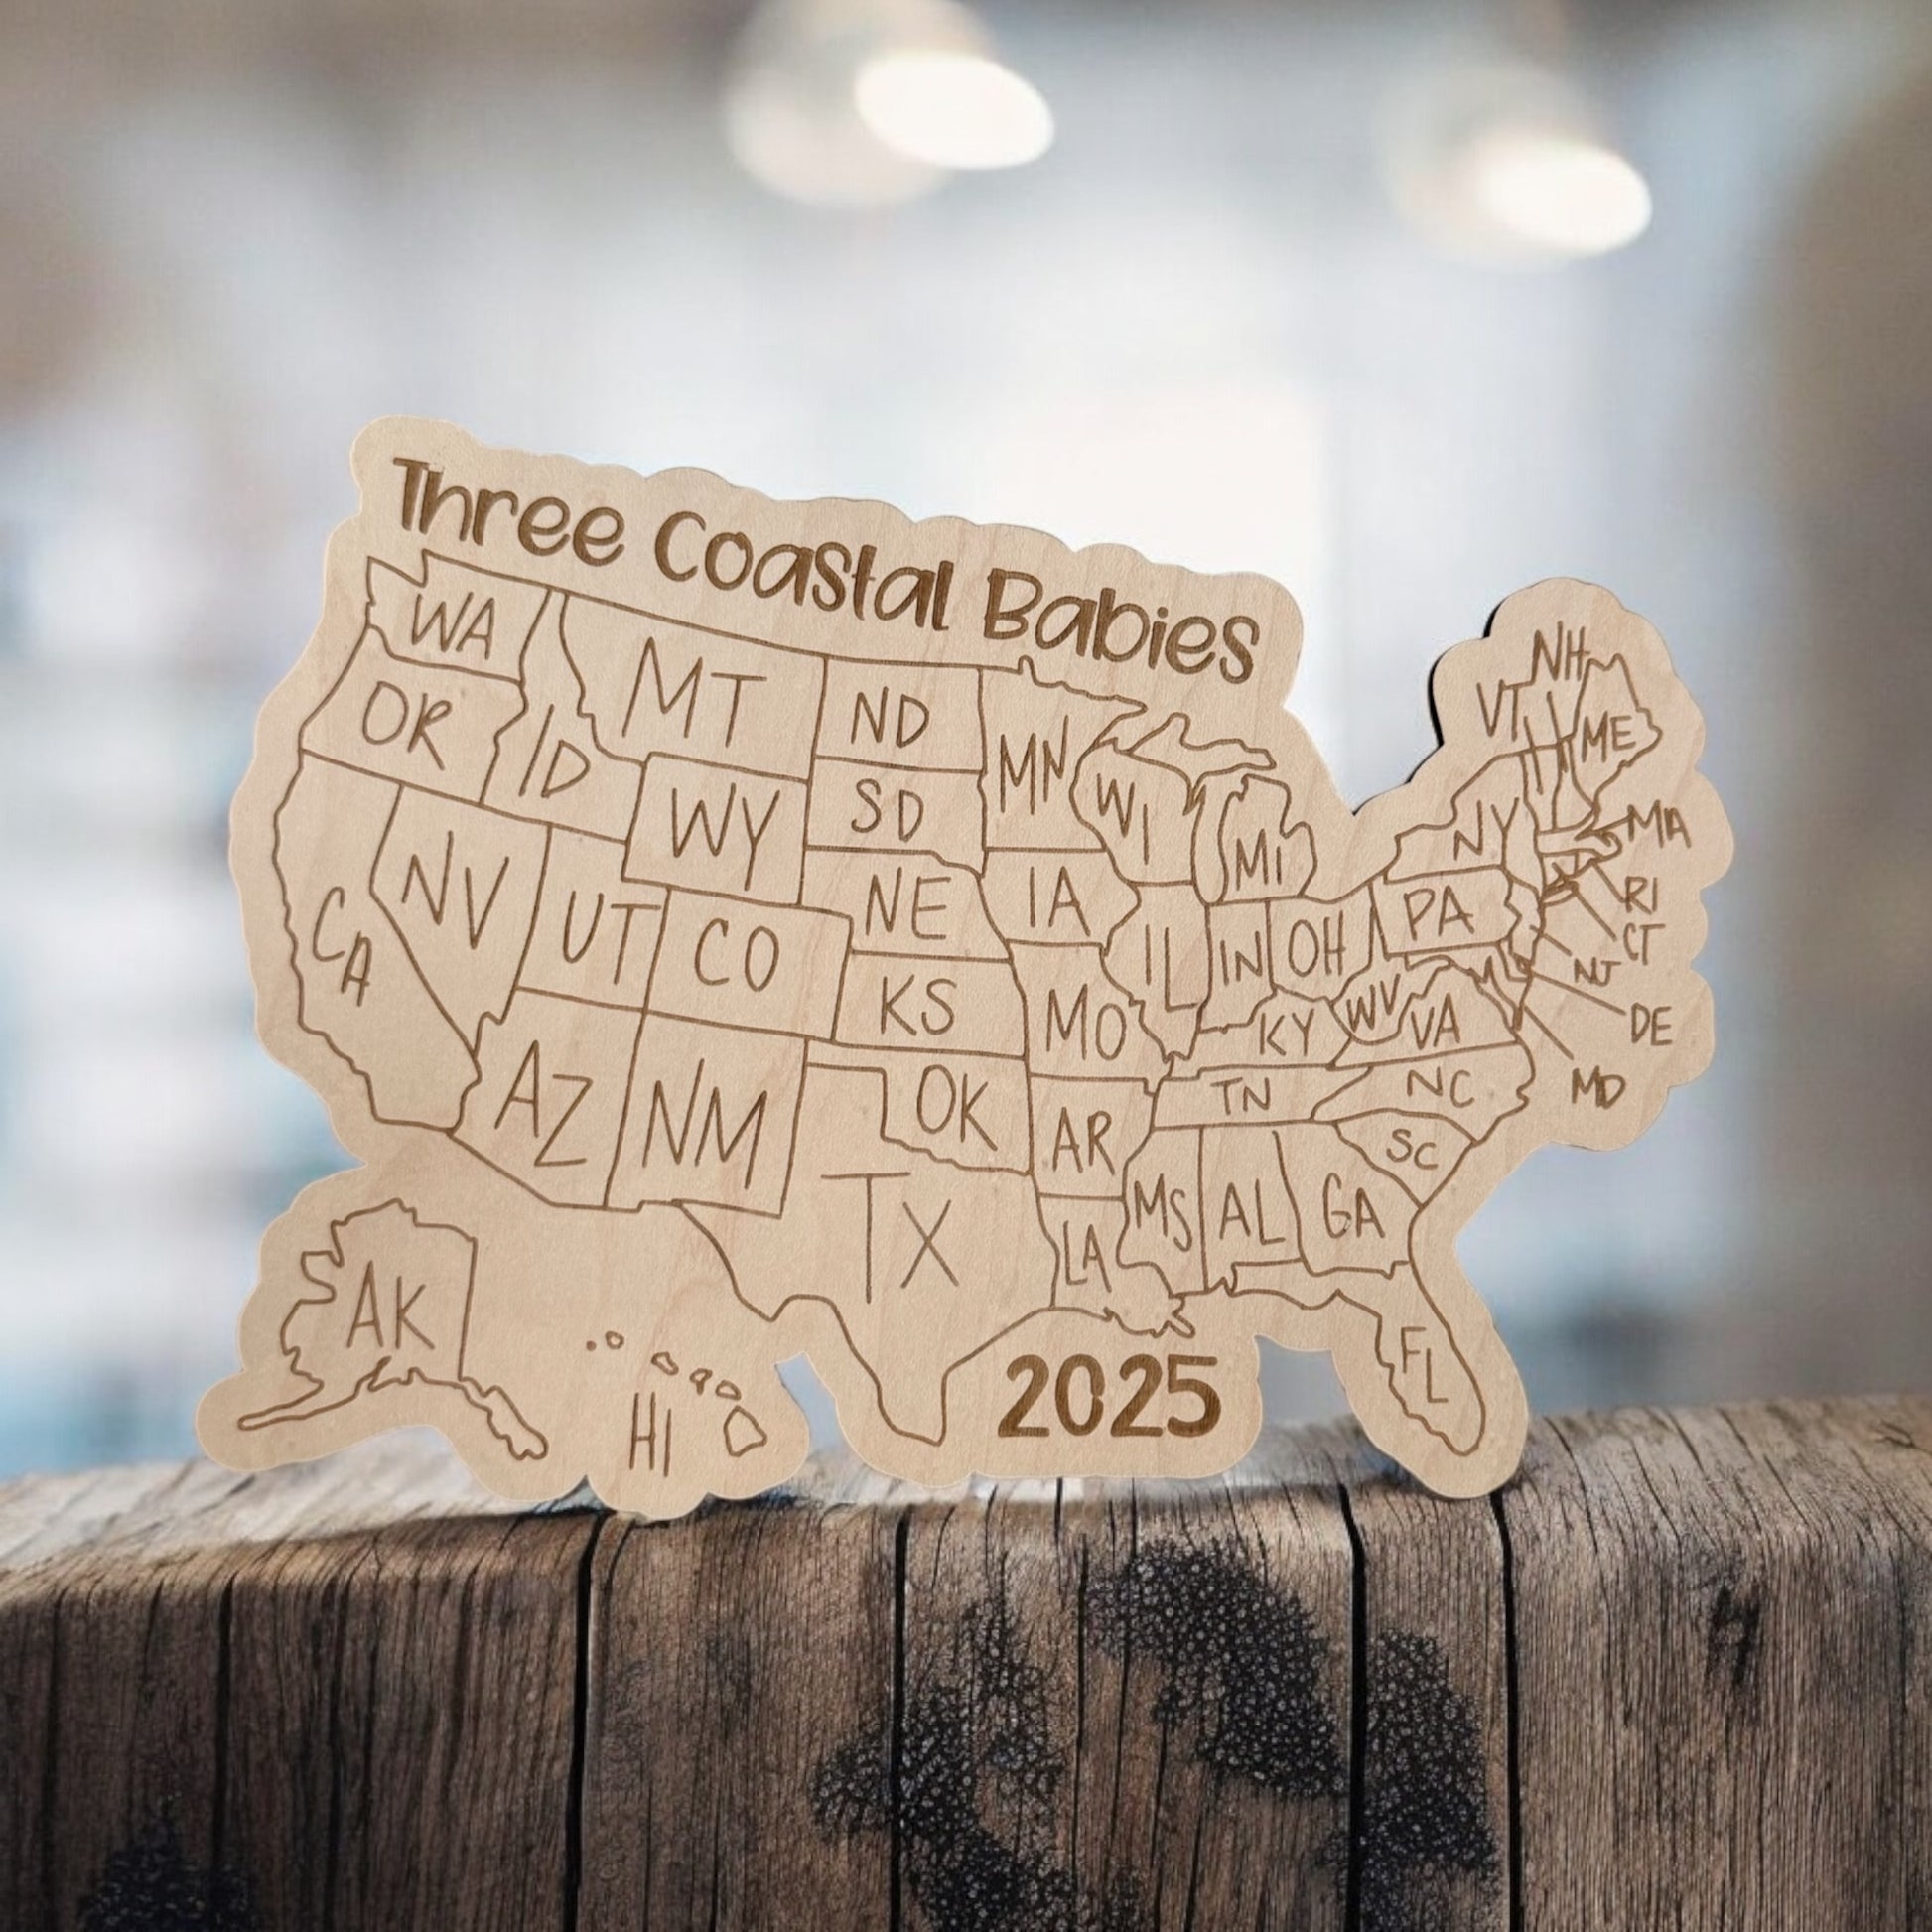 Three Coastal Babies
NH
WA
VT
ME
MT
ND
OR
ID
MN
WI
SD
WY
NY
MA
MI
NV
NE
IA
PA
RI
CA
UT
CO
IL
IN
OH
CT
NJ
KS
MO
KY
WV
VA
DE
AZ
NM
OK
AR
TN
NC
MD
SC
TX
MS
AL
GA
LA
AK
FL
HI
2025